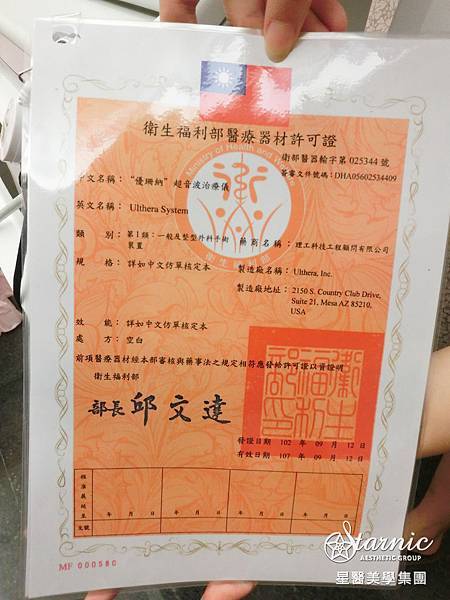 衛生福利部醫療器材許可證
衛部醫器輸字第 025344 號
簽審文件號碼：DHA05602534409
Ministry of Health and Welfare
中文名稱："優珊納"超音波治療儀
英文名稱：Ulthera System
類　別：第1類：一般及整型外科手術裝置
藥商名稱：理工科技工程顧問有限公司
規　格：詳如中文仿單核定本
製造廠名稱：Ulthera, Inc.
製造廠地址：2150 S. Country Club Drive,
Suite 21, Mesa AZ 85210,
USA
效　能：詳如中文仿單核定本
處　方：空白
前項醫療器材經本部審核與藥事法之規定相符應發給許可證以資證明
衛生福利部
部長 邱文達
衛生福利部印
發證日期 102 年 09 月 12 日
有效日期 107 年 09 月 12 日
年 月 日 年 月 日 年 月 日 年 月 日
MF 000580
Starnic
AESTHETIC GROUP
星醫美學集團